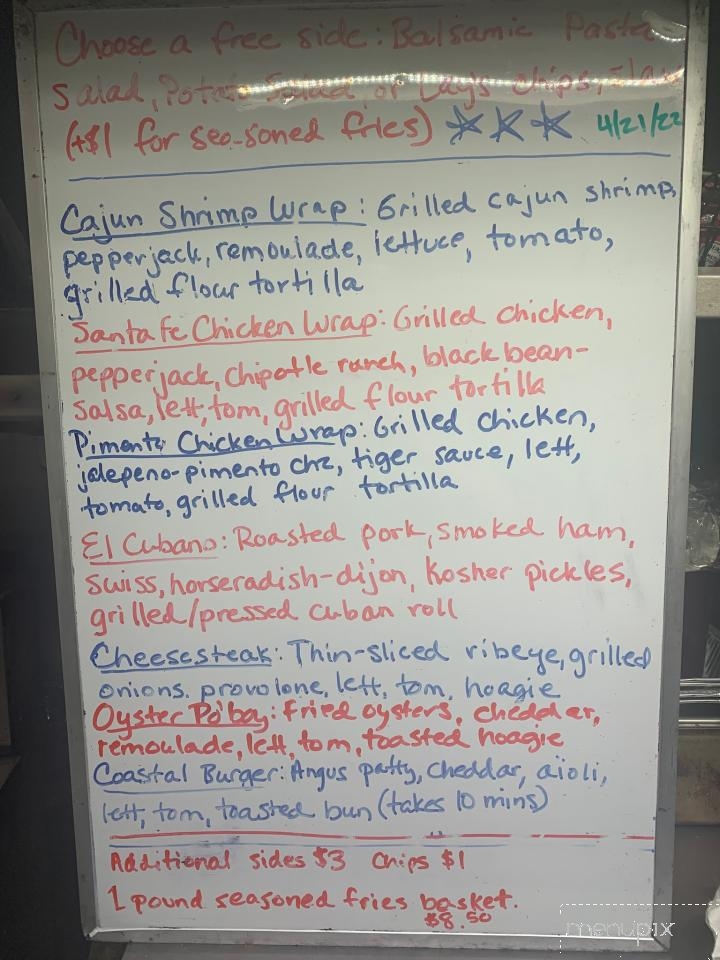 Choose a free side: Balsamic Pasta
Salad, Potato Salad, or Lay's chips, Slaw
(+$1 for sea-soned fries) ☆☆☆ 4/21/22
Cajun Shrimp Wrap: Grilled cajun shrimp,
pepperjack, remoulade, lettuce, tomato,
grilled flour tortilla
Santa Fe Chicken Wrap: Grilled chicken,
pepperjack, chipotle ranch, black bean-
salsa, lett, tom, grilled flour tortilla
Pimento Chicken Wrap: Grilled chicken,
jalepeno-pimento chz, tiger sauce, lett,
tomato, grilled flour tortilla
El Cubano: Roasted pork, smoked ham,
swiss, horseradish-dijon, Kosher pickles,
grilled/pressed cuban roll
Cheesesteak: Thin-sliced ribeye, grilled
onions, provolone, lett, tom, hoagie
Oyster Po'boy: Fried oysters, cheddar,
remoulade, lett, tom, toasted hoagie
Coastal Burger: Angus patty, cheddar, aïoli,
lett, tom, toasted bun (takes 10 mins)
Additional sides $3 Chips $1
1 pound seasoned fries basket.
$8.50
menupix